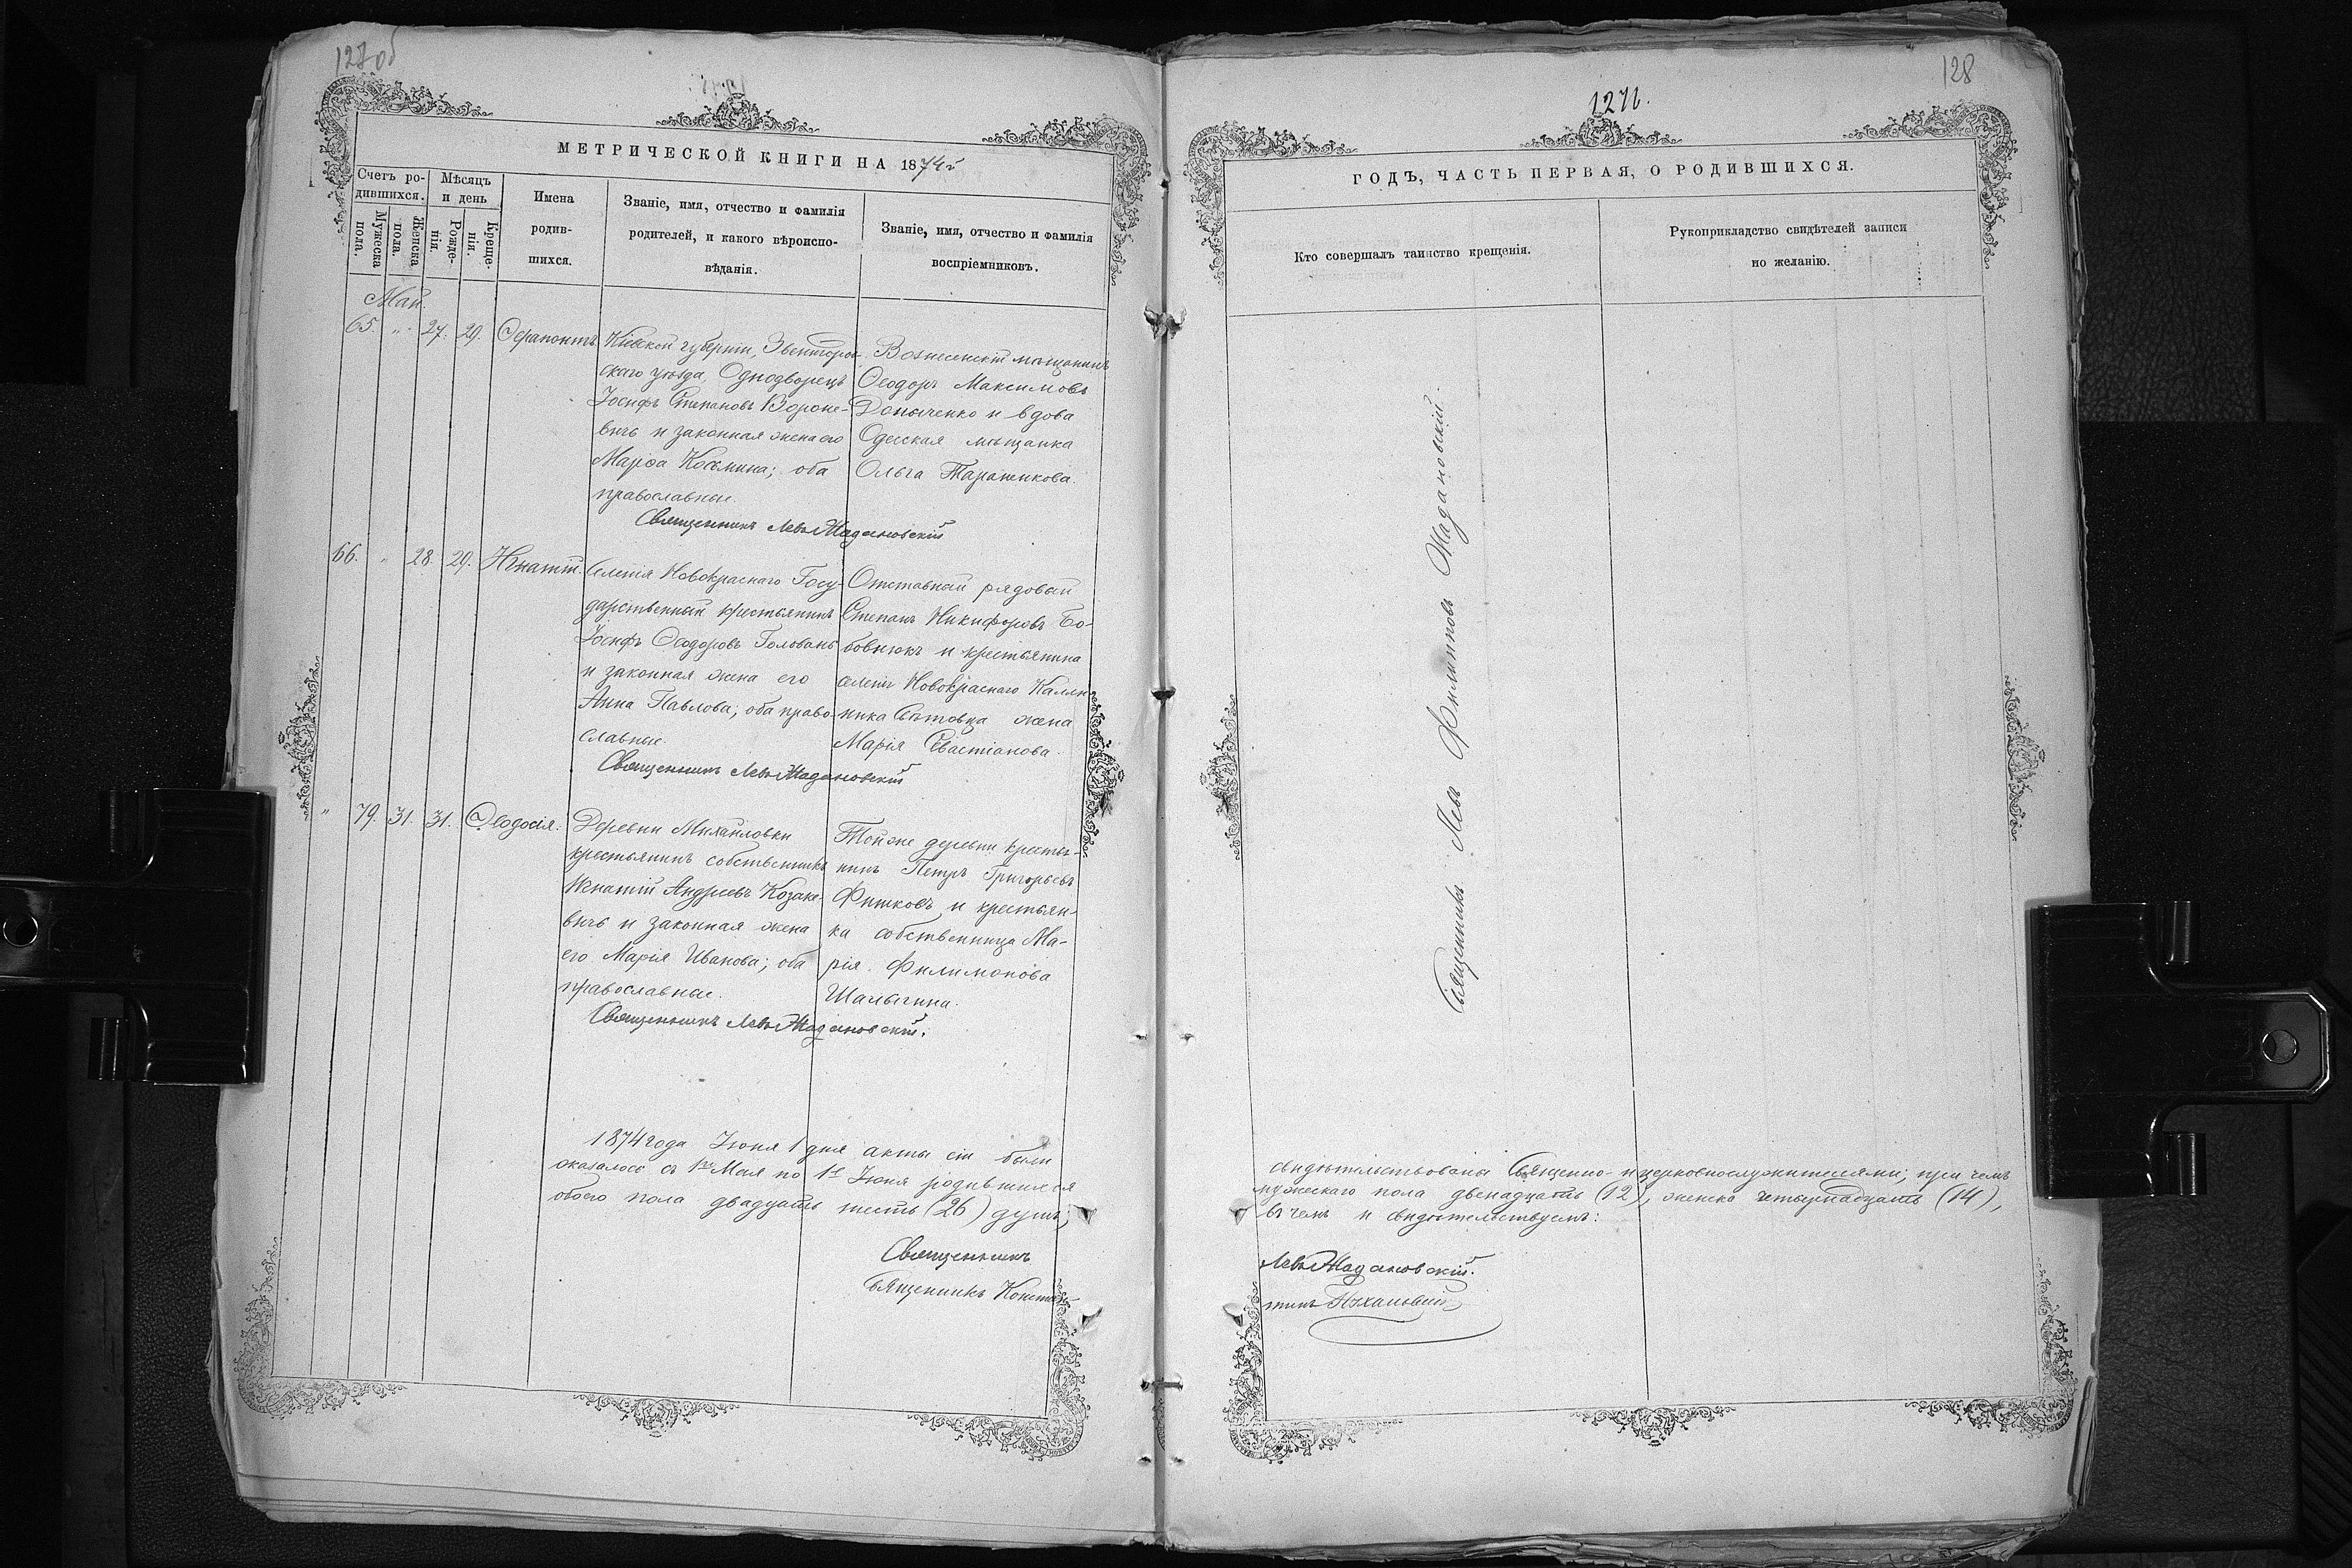 127об
МЕТРИЧЕСКОЙ КНИГИ НА 1874й
Счетъ ро-
дившихся.
Мѣсяцъ
и день
Мужеска
пола.
Женска
пола.
Рожде-
нія.
Креще-
нія.
Имена
родив-
шихся.
Званіе, имя, отчество и фамилія
родителей, и какого вѣроиспо-
вѣданія.
Званіе, имя, отчество и фамилія
воспріемниковъ.
Май.
65. " 27. 29. Ѳерапонтъ
Кіевской губерніи, Звенигород
скаго уѣзда, Однодворецъ
Іосифъ Степановъ Вороне-
вичъ и законная жена его
Марѳа Косьмина; оба
православные.
Вознесенскій мѣщанинъ
Ѳеодоръ Максимовъ
и вдова
Одесская мѣщанка
Ольга
Священникъ Левъ Жадановскій
66. " 28. 29. Игнатій.
Селенія Новокраснаго Госу-
дарственный крестьянинъ
Іосифъ Ѳеодоровъ Головань
и законная жена его
Анна Павлова; оба право-
славные.
Отставной рядовой
Степанъ Никифоровъ Бо-
и крестьянина
селенія Новокраснаго Калли-
ника жена
Марія Севастіанова.
Священникъ Левъ Жадановскій
" 79. 31. 31. Ѳеодосія.
Деревни Михайловки
крестьянинъ собственникъ
Игнатій Андреевъ Козаке-
вичъ и законная жена
его Марія Иванова; оба
православные.
Той же деревни крестья-
нинъ Петръ Григорьевъ
Фишковъ и крестьян-
ка собственница Ма-
рія Филимонова
Шалыгина.
Священникъ Левъ Жадановскій.
1874 года Іюня 1 дня акты сіи были
оказалось съ 1го Мая по 1е Іюня родившихся
обоего пола двадцать шесть (26) душъ;
Священникъ
Священникъ Констан-
128
1271.
ГОДЪ, ЧАСТЬ ПЕРВАЯ, О РОДИВШИХСЯ.
Кто совершалъ таинство крещенія.
Рукоприкладство свидѣтелей записи
по желанію.
Священникъ Левъ Филипповъ Жадановскій.
свидѣтельствованы Священно-и церковнослужителями; при чемъ
мужескаго пола двенадцать (12), женска четырнадцать (14),
въ чемъ и свидѣтельствуемъ:
Левъ Жадановскій.
тинъ